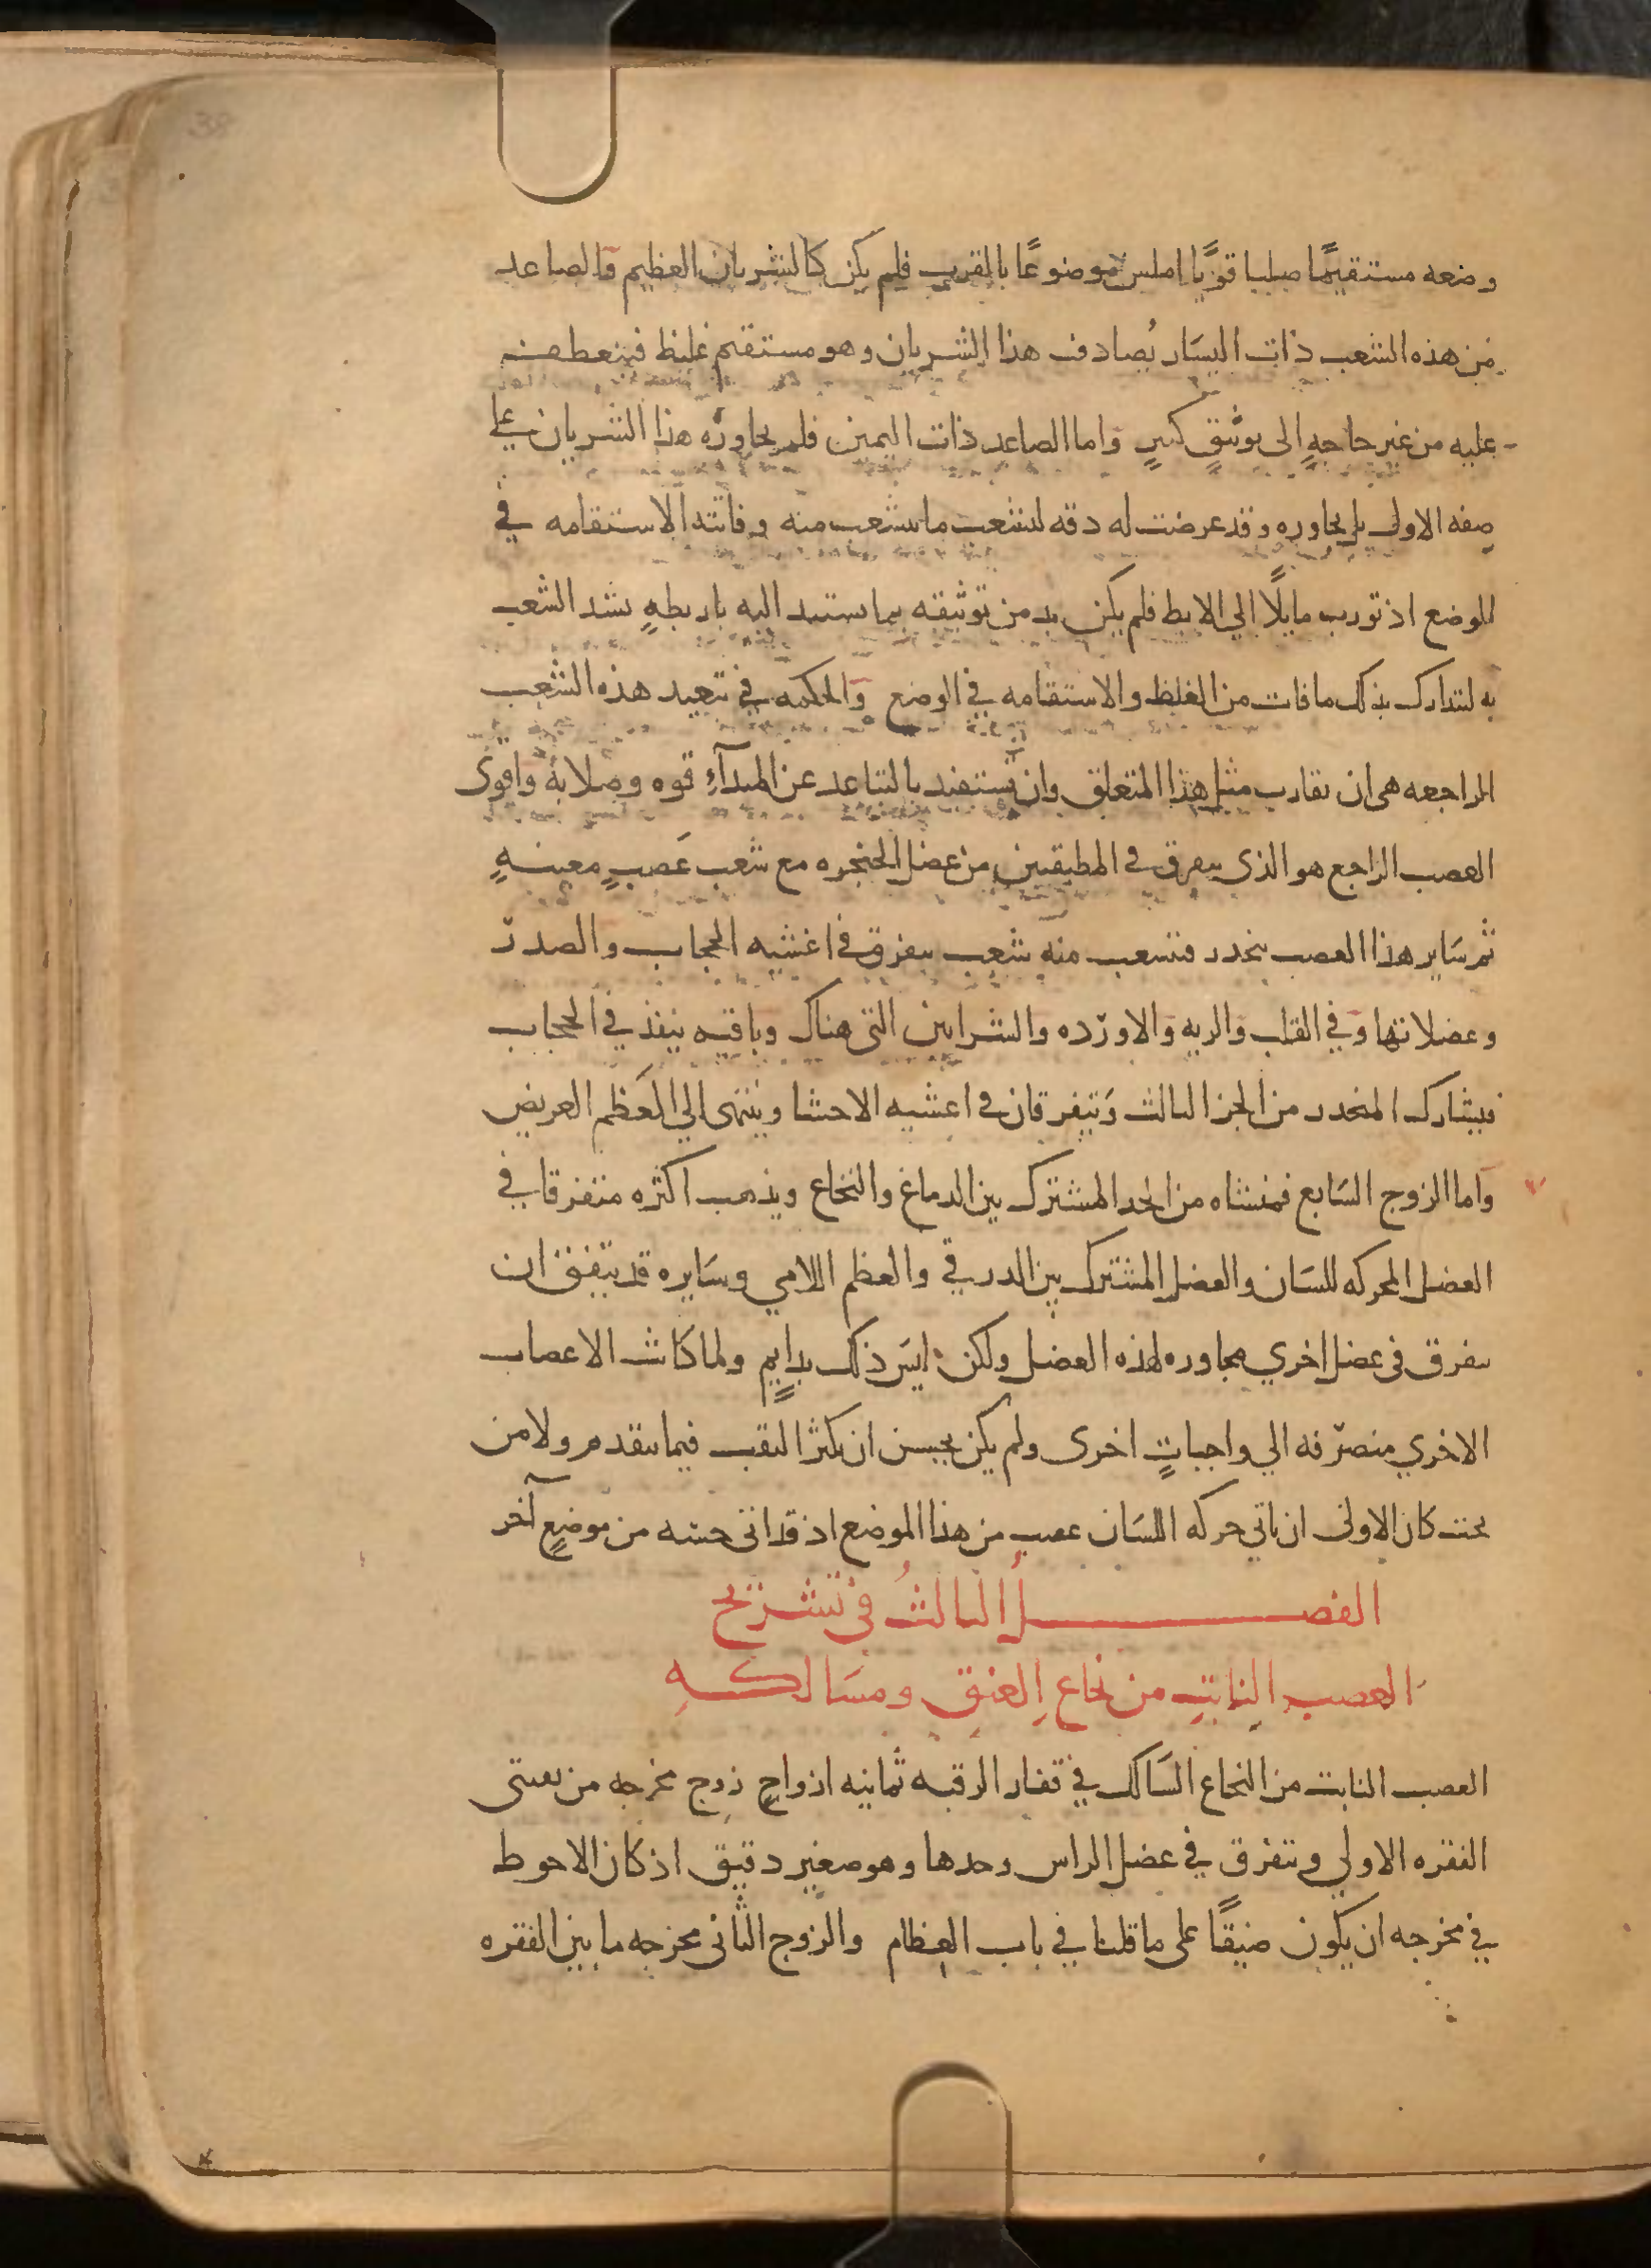 وضعه مستقيمًا صلبا قويًا املس موضوعًا بالقرب فلم يكن كالشريان العظيم والصاعد
من هذه الشعب ذات اليسَار يُصادف هذا الشريان وهو مستقيم غليظ فينعطف
عليه من غير حاجةٍ الى توثيقٍ كثيرٍ واما الصاعد ذات اليمين فلم يجاوره هذا الشريان علي
صفه الاولى بل يجاوره وقد عرضت له دقه لتشعب ما تشعب منه وفاتته الاستقامه في
الوضع اذ تورب مايلًا الي الابط فلم يكن بد من توثيقه بما يستند اليه باربطهٍ تشد الشعب
به ليتدارك بذلك ما فات من الغلظ والاستقامه في الوضع والحكمه في تبعيد هذه الشعب
الراجعه هى ان تقارب مثل هذا المتعلق وان تستفيد بالتباعد عن المبدآءِ قوه وصلابة واقوى
العصب الراجع هو الذى يتفرق في المطبقين من عضل الحنجره مع شعب عَصبٍ معينهٍ
ثم سَاير هذا العصب ينحدر فتشعب منه شعب يتفرق في اغشيه الحجاب والصدر
وعضلاتها وفي القلب والريه والاورده والشرايين التى هناك وباقيه ينفذ في الحجاب
فيشارك المنحدر من الجز الثالث ويتفرقان في اغشيه الاحشا وينتهى الي العَظم العريض
واما الزوج السَابع فمنشاه من الحد المشترك بين الدماغ والنخاع ويذهب اكثره متفرقا في
العضل المحركه للسَان والعضل المشترك بين الدرقي والعظم اللامي وسَايره قد يتفق ان
يتفرق فى عضل اخري مجاوره لهذه العضل ولكن ليسَ ذلك بدايمٍ ولما كانت الاعصاب
الاخري منصرفه الي واجباتٍ اخرى ولم يكن يحسن ان يكثر الثقب فيما يتقدم ولا من
تحت كان الاولى ان ياتي حركه اللسَان عصب من هذا الموضع اذ قد اتى حسّه من موضعٍ آخر
الفصلُ الثالثُ في تشريح
العصب النابتِ من نخاع العنق ومسَالكهِ
العصب النابت من النخاع السَالك في فقار الرقبه ثمانيه ازواجٍ زوج مخرجه من ثقبتى
الفقره الاولي ويتفرق في عضل الراس وحدها وهو صغير دقيق اذ كان الاحوط
في مخرجه ان يكون ضيقًا على ما قلنا في باب العظام والزوج الثانى مخرجه ما بين الفقره